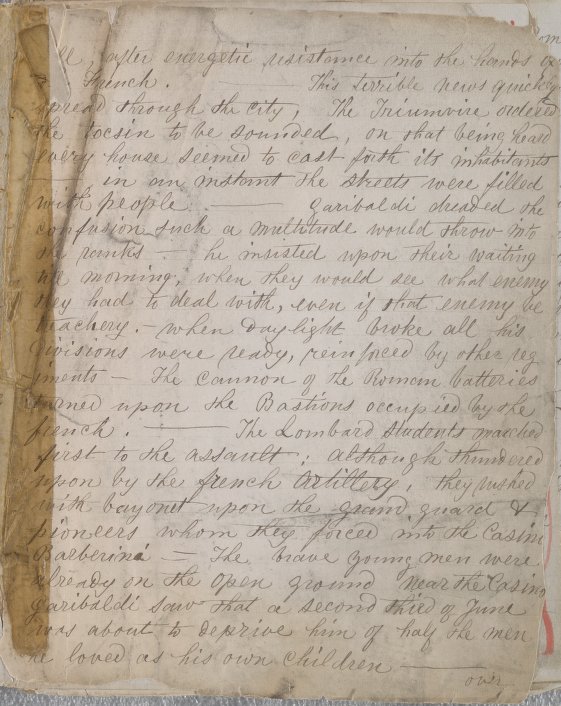 after energetic resistance into the hands of
French. — This terrible news quickly
spread through the city, The Triumvire ordered
the tocsin to be sounded, on that being heard
every house seemed to cast forth its inhabitants
in an instant the streets were filled
with people — Garibaldi dreaded the
confusion such a multitude would throw into
the ranks — he insisted upon their waiting
morning, when they would see what enemy
they had to deal with, even if that enemy be
treachery. — when daylight broke all his
divisions were ready, reinforced by other reg
iments — The cannon of the Roman batteries
turned upon the Bastions occupied by the
french. — The Lombard Students marched
first to the assault; although thundered
upon by the french Artillery, they rushed
with bayonet upon the grand guard &
pioneers whom they forced into the Casini
Barberini — The brave young men were
already on the open ground near the Casino
Garibaldi saw that a second third of June
was about to deprive him of half the men
he loved as his own children —
over